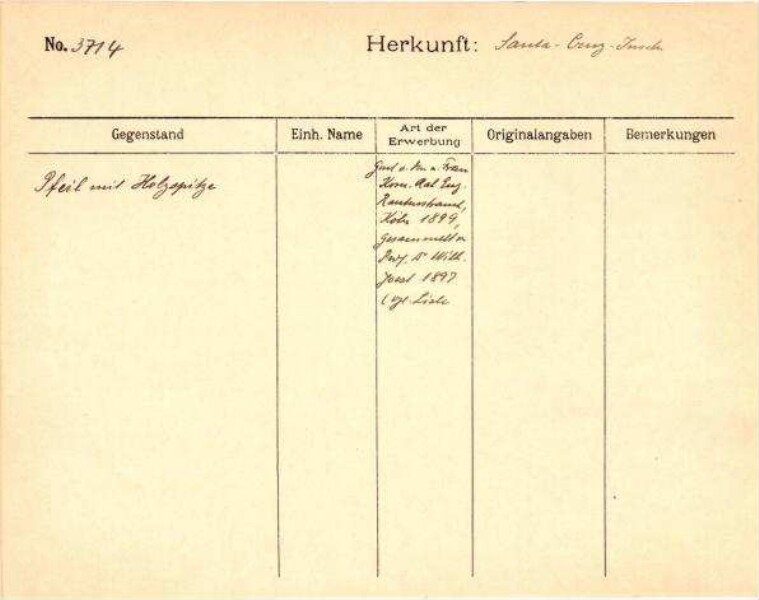 No. 3714
Herkunft: Santa-Cruz-Inseln
Gegenstand
Einh. Name
Art der Erwerbung
Originalangaben
Bemerkungen
Pfeil mit Holzspitze
Gesch. v. Hrn. u. Frau
Kom. Rat Eug.
Rautenstrauch,
Köln 1899,
gesammelt v.
Prof. Dr Wilh.
Joest 1897
(vgl. Liste